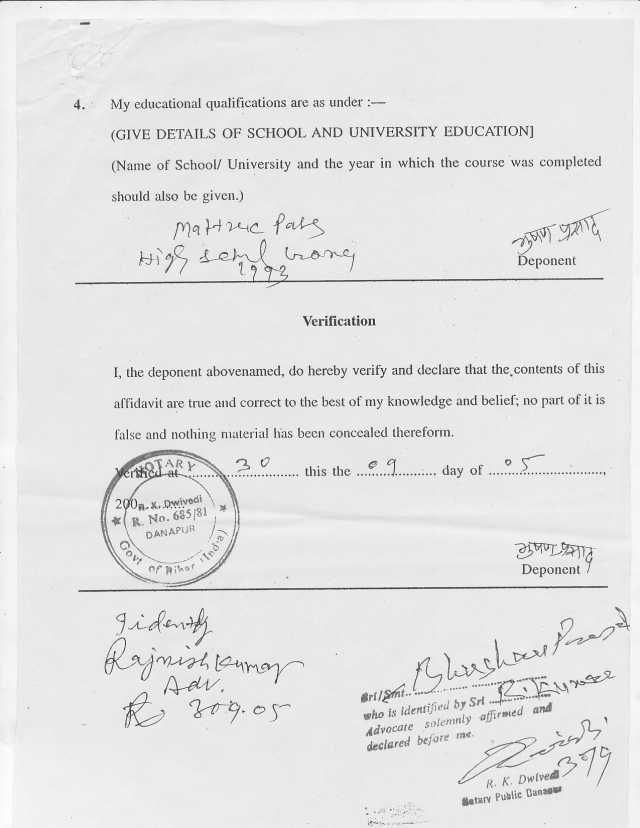 4. My educational qualifications are as under :—
(GIVE DETAILS OF SCHOOL AND UNIVERSITY EDUCATION]
(Name of School/ University and the year in which the course was completed
should also be given.)
Mattric Pass
High
1993
भुषण प्रसाद
Deponent
Verification
I, the deponent abovenamed, do hereby verify and declare that the contents of this
affidavit are true and correct to the best of my knowledge and belief; no part of it is
false and nothing material has been concealed thereform.
Verified at ........30........ this the ..09.. day of ..05..,
200
NOTARY
R. K. Dwivedi
R. No. 685/81
DANAPUR
Govt of Bihar (India)
भुषण प्रसाद
Deponent
I identify
Rajnish Kumar
Adv.
309.05
Bhushan Prasad
Sri/Smt.
who is identified by Sri R. Kumar
Advocate solemnly affirmed and
declared before me.
R. K. Dwivedi
Notary Public Danapur